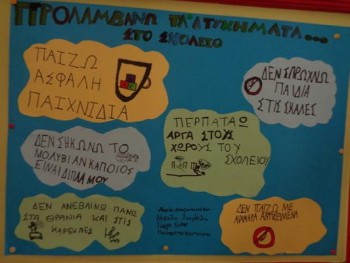 ΠΡΟΛΑΜΒΑΝΩ ΤΑ ΑΤΥΧΗΜΑΤΑ...
ΣΤΟ ΣΧΟΛΕΙΟ
ΠΑΙΖΩ
ΑΣΦΑΛΗ
ΠΑΙΧΝΙΔΙΑ
ΔΕΝ ΣΠΡΩΧΝΩ
ΠΑΙΔΙΑ
ΣΤΙΣ ΣΚΑΛΕΣ
ΠΕΡΠΑΤΑΩ
ΑΡΓΑ ΣΤΟΥΣ
ΧΩΡΟΥΣ ΤΟΥ
ΣΧΟΛΕΙΟΥ
ΔΕΝ ΣΗΚΩΝΩ ΤΟ
ΜΟΛΥΒΙ ΑΝ ΚΑΠΟΙΟΣ
ΕΙΝΑΙ ΔΙΠΛΑ ΜΟΥ
ΔΕΝ ΑΝΕΒΑΙΝΩ ΠΑΝΩ
ΣΤΑ ΘΡΑΝΙΑ ΚΑΙ ΣΤΙΣ
ΚΑΡΕΚΛΕΣ
ΔΕΝ ΠΑΙΖΩ ΜΕ
ΑΝΤΙΚΕΙΜΕΝΑ